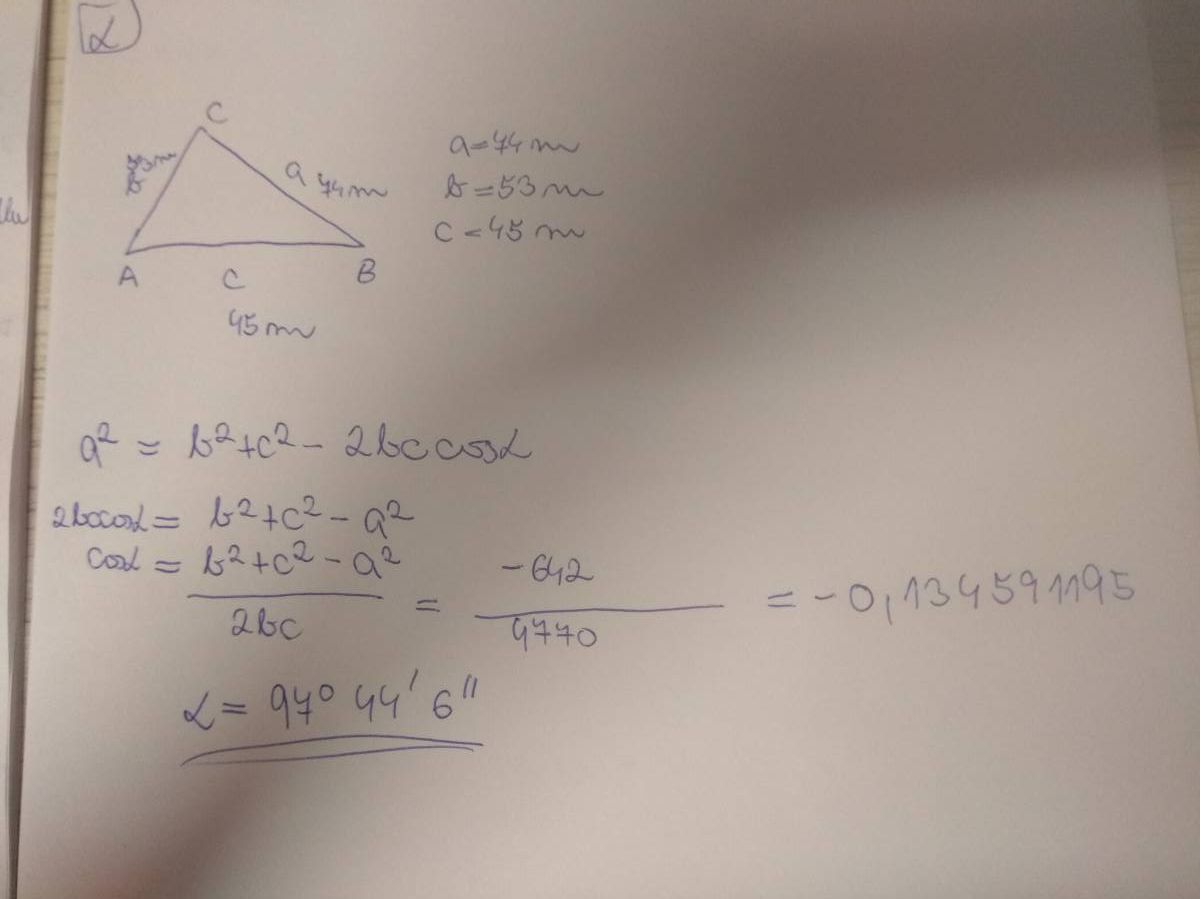 α
C
53m
b
a 74m
A
C
B
45m
a=74m
b=53m
c=45m
a² = b²+c² - 2bc cosα
2bccosα = b²+c² - a²
cosα = b²+c² - a² / 2bc = -642 / 4770 = -0,134591195
α = 97° 44' 6"